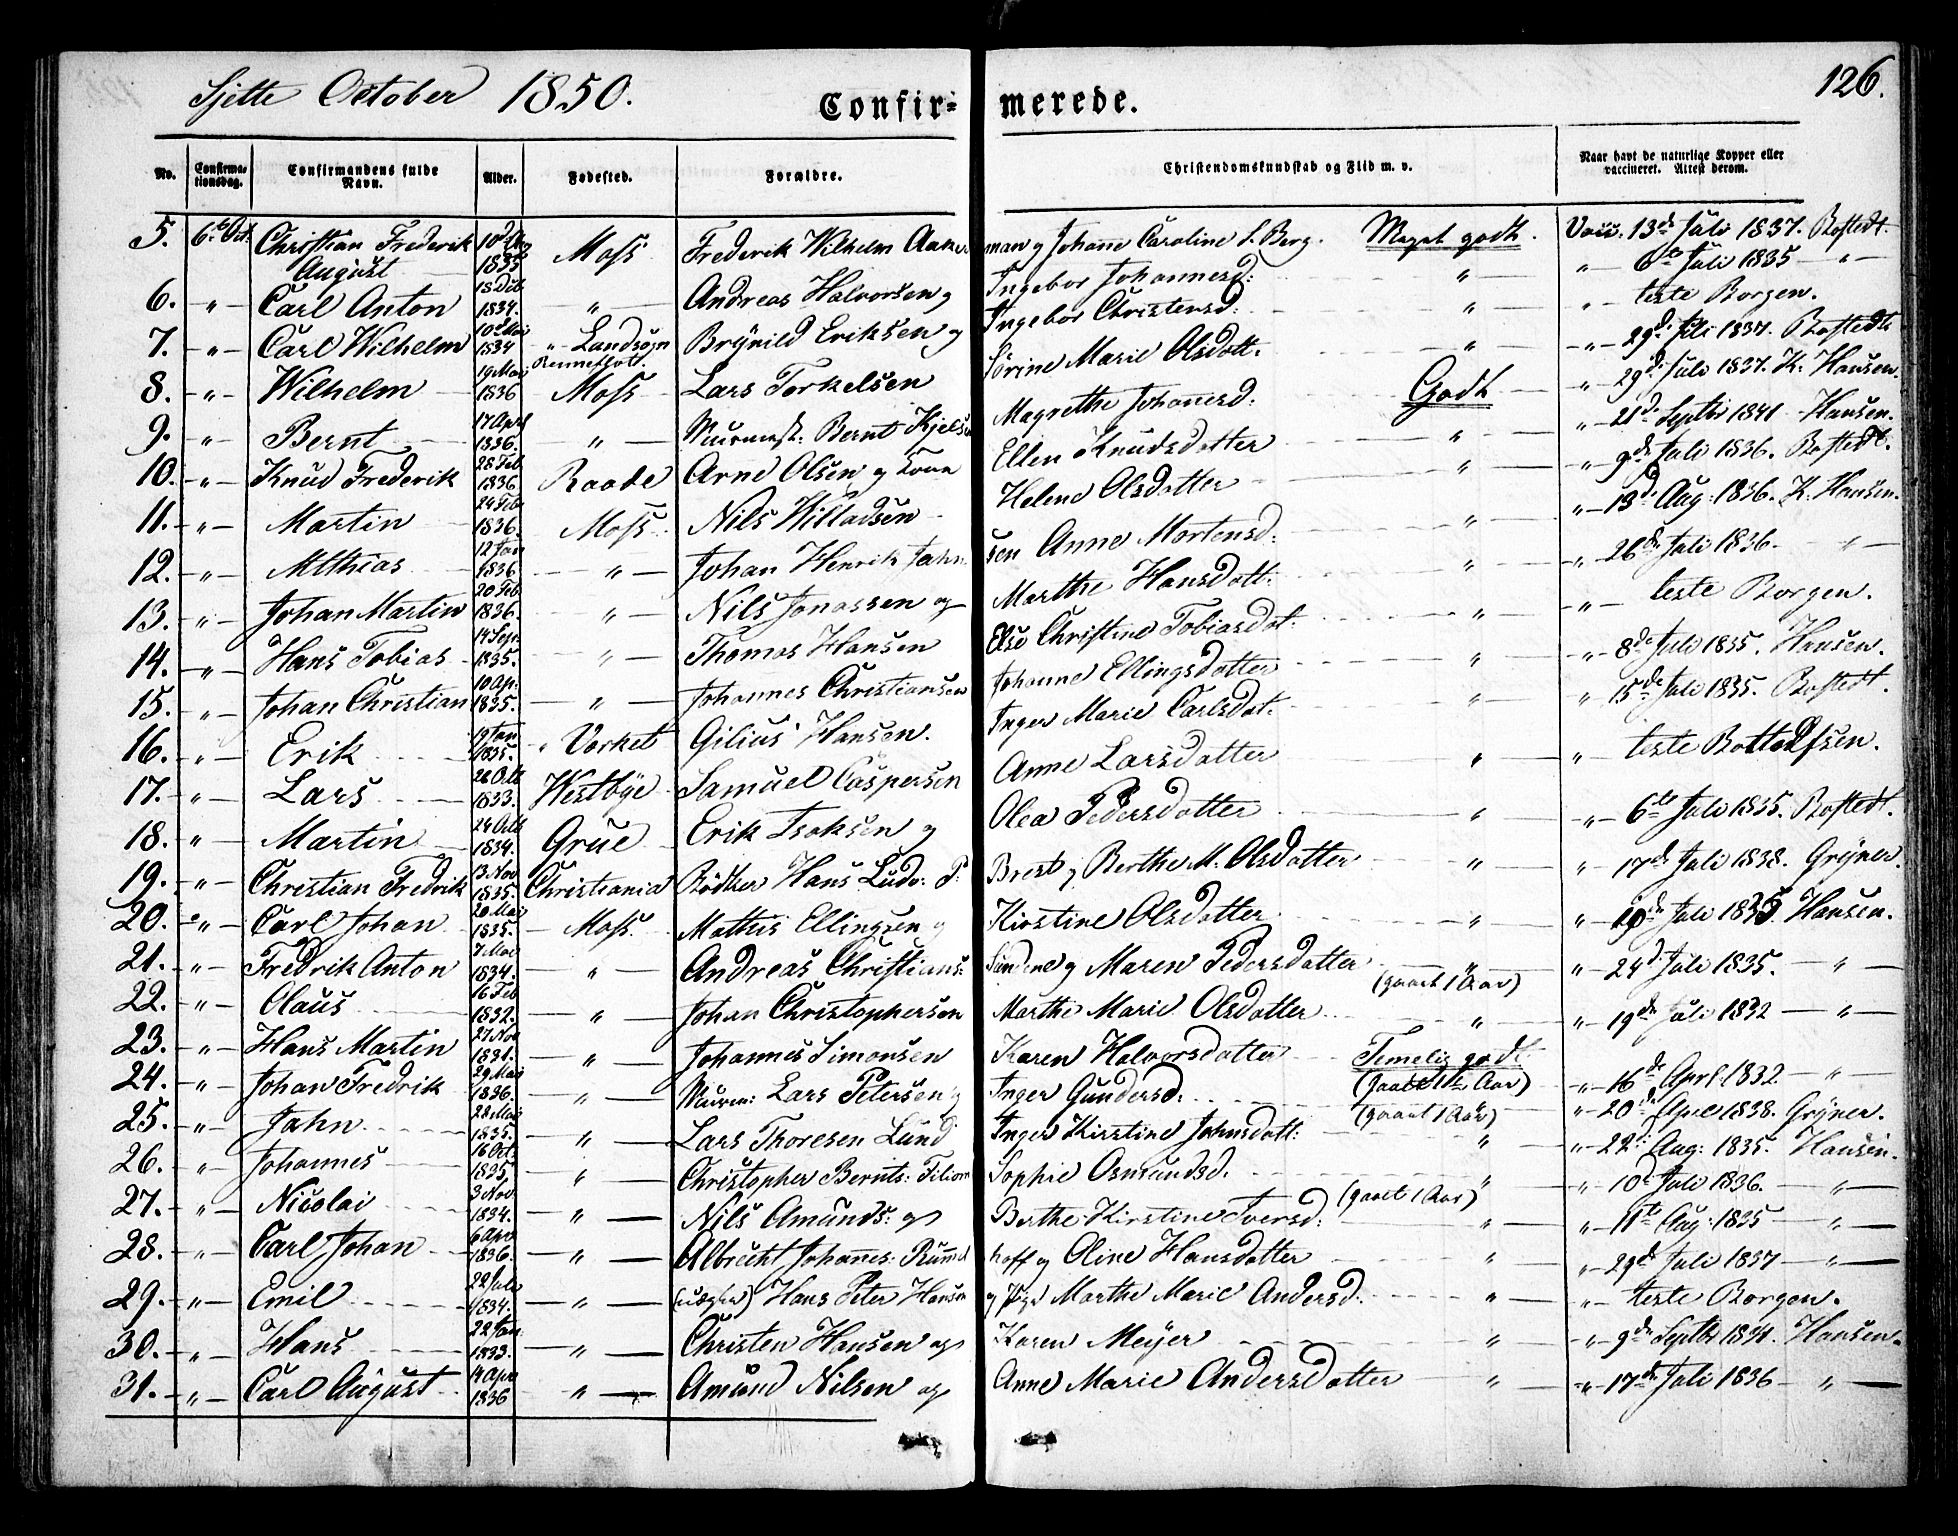 Sjette October 1850.
126.
Confir- merede.
No. Confirma-tionsdag. Confirmandens fulde Navn. Alder. Fødested. Forældre. Christendomskundskab og Flid m. v. Naar havt de naturlige Kopper eller vaccineret. Attest derom.
5. 6te Oct. Christian Frederik August 10d 1835 Moss Frederik Wilhelm Aaker man og Johane Caroline S. Berg. Meget godt. Vacc. 13de Juli 1837. Bostedt.
6. " Carl Anton 18 Deb 1834. " Andreas Halvorsen og Ingebor Johannesd: " " 6te Juli 1835 "
7. " Carl Wilhelm 10d Mai 1834 " Landsogn Brynild Eriksen og Ingebor Christensd: " " teste Borgen.
8. " Wilhelm 19 Mai 1836 Moss Lars Torkelsen Sørine Marie Olsdatt. " " 29de Juli 1837. Bostedt
9. " Bernt 17 Apr 1836. " Muurmest: Bernt Kjels Magrethe Johanesd: Godt " 29de Juli 1837. K. Hansen.
10. " Knud Frederik 28 Feb 1836 Raade Arne Olsen og Kone Ellen Knudsdatter " " 21d Septbr 1841 Hansen.
11. " Martin 24 Feb 1836. Moss Nils Willadsen Helene Olsdatter " " 9de Juli 1836. Bostedt.
12. " Mthias 12 Jan 1836 " Johan Henrik Jahn sen Anne Mortensd: " " 13d Aug: 1836. K. Hansen.
13. " Johan Martin 20 Feb 1836. " Nils Jonassen og Marthe Hansdatt: " " 26de Juli 1836. "
14. " Hans Tobias 14 Sep 1835. " Thomas Hansen Else Christine Tobiasdat. " " teste Borgen.
15. " Johan Christian 10 Ap: 1835. " Johannes Christiansen Johanne Ellingsdatter " " 8de Juli 1835. Hansen.
16. " Erik 19 Jan 1835. " Vorket Gilius Hansen. Inger Marie Carlsdat. " " 15de Juli 1835. Bostedt.
17. " Lars 26 Octb 1833. Westbye Samuel Caspersen Anne Larsdatter " " teste Bottolfsen.
18. " Martin 24 Octb 1834. Grue Erik Isaksen og Olea Pedersdatter " " 6te Juli 1835. Bostedt.
19. " Christian Fredrik 3 Nov 1835. Christiania Bødker Hans Ludv: P: Brest og Berthe M. Olsdatter " " 17de Juli 1838. Grýner
20. " Carl Johan 20 Mai 1835. Moss. Mathis Ellingsen og Kirstine Olsdatter " " 10de Juli 1835. Hansen.
21. " Fredrik Anton 7 Mai 1834. " Andreas Christians: Sundene og Maren Pedersdatter " (gaaet 1 Aar) " 24d Juli 1835. "
22. " Olaus 16 Feb 1832. " Johan Christophersen Marthe Marie Olsdatter " " 19de Juli 1832 "
23. " Hans Martin 27 Nov 1831. " Johannes Simonsen Karen Halvorsdatter Temelig godt. (gaaet Aar) " 16de April 1832 "
24. " Johan Fredrik 29 Mai 1836. " Muurm: Lars Petersen og Inger Gundersd: (gaaet 1 Aar) " 20de April 1838. Grýner.
25. " Jahn 28 Mai 1835. " Lars Thoresen Lund Inger Kirstine Johnsdatt: " " 22: Aug: 1835. Hansen.
26. " Johannes 16 Oct. 1835. " Christopher Bernts: Sophie Osmundsd. " " 10d Juli 1836. "
27. " Nicolai 3 Nov. 1834. " Nils Amunds: og Berthe Kirstine Iversd: (gaaet 1 Aar) " " 11te Aug: 1835 "
28. " Carl Johan 6 Apr 1836. " Albrecht Johanes: hoff og Oline Hansdatter " " 29de Juli 1837 "
29. " Emil 29 Juli 1834. " (uægte) Hans Peter Hansen og Pige Marthe Marie Andersd: " " teste Borgen.
30. " Hans 22 Jan 1833. " Christen Hansen og Karen Meyer " " 9de Septbr Hansen
31. " Carl August 14 Apr 1836 " Amund Nilsen og Anne Marie Andersdatter " " 17de Juli 1836 "